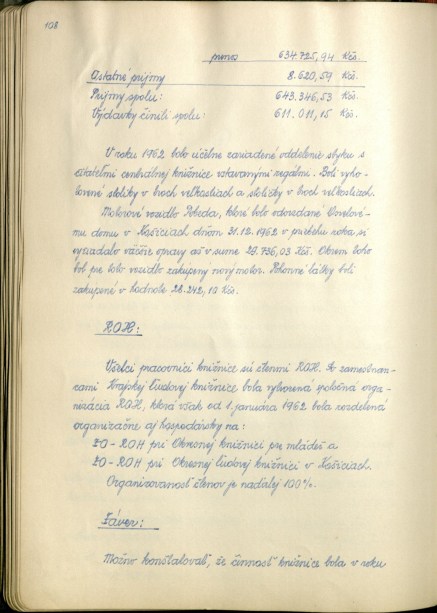 108
prenos 634.725,94 Kčs.
Ostatné príjmy 8.620,59 Kčs.
Príjmy spolu: 643.346,53 Kčs.
Výdavky činili spolu: 611.011,15 Kčs.
V roku 1962 bolo účelne zariadené oddelenie styku s
čitateľmi centrálnej knižnice vstavanými regálmi. Boli vyho-
tovené stolíky v troch veľkostiach a stoličky v troch veľkostiach.
Motorové vozidlo Pobeda, ktoré bolo odovzdané Osveto-
mu domu v Košiciach dňom 31.12.1962 v priebehu roka si
vyžiadalo väčšie opravy až v sume 29.736,03 Kčs. Okrem toho
bol pre toto vozidlo zakúpený nový motor. Pohonné látky boli
zakúpené v hodnote 28.242,10 Kčs.
ROH:
Všetci pracovníci knižnice sú členmi ROH. So zamestnan-
cami Krajskej ľudovej knižnice bola vytvorená spoločná orga-
nizácia ROH, ktorá však od 1. januára 1962 bola rozdelená
organizačne aj hospodársky na:
ZO-ROH pri Okresnej knižnici pre mládež a
ZO-ROH pri Okresnej ľudovej knižnici v Košiciach.
Organizovanosť členov je naďalej 100%.
Záver:
Možno konštatovať, že činnosť knižnice bola v roku